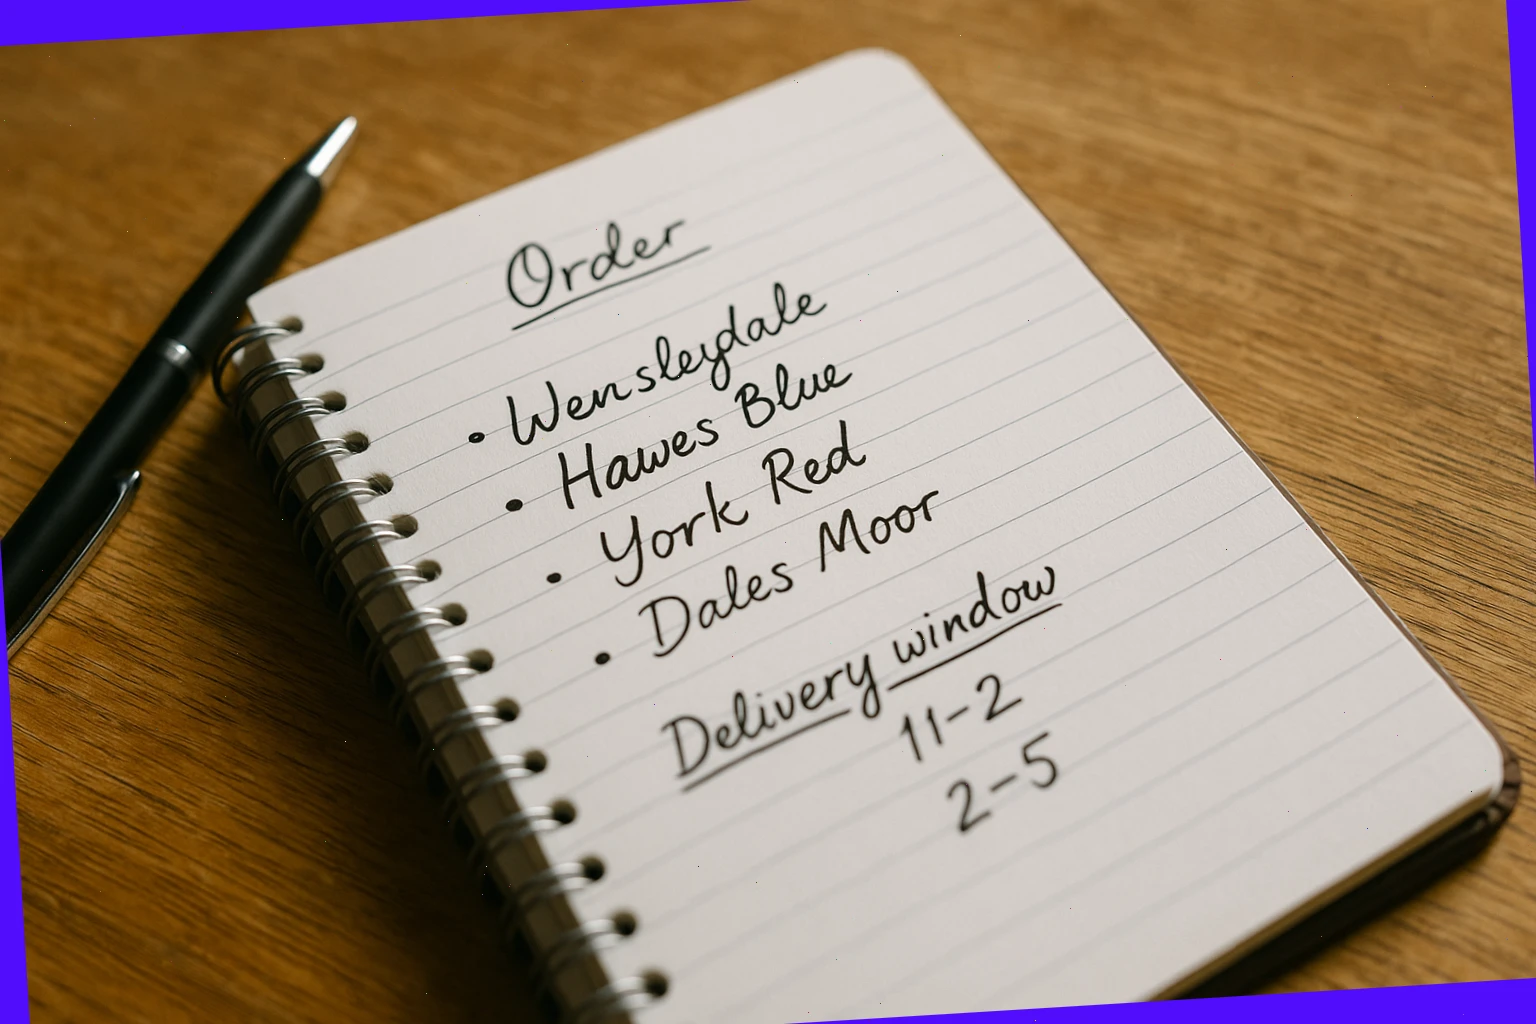 Order
• Wensleydale
• Hawes Blue
• York Red
• Dales Moor
Delivery window
11-2
2-5